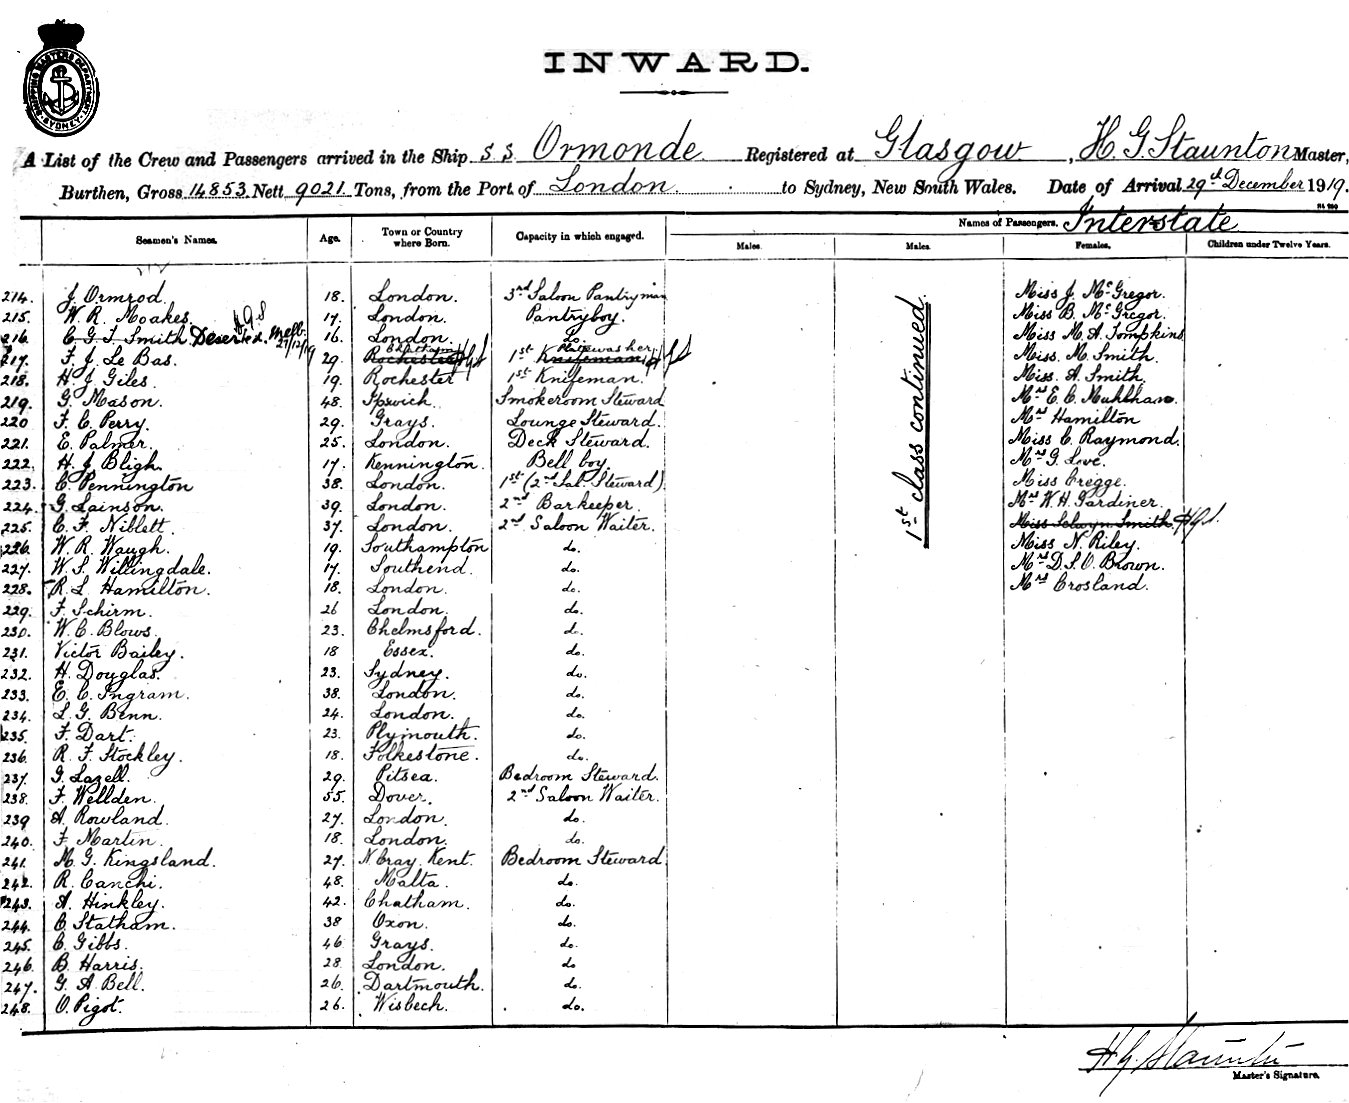 SHIPPING MASTERS DEPARTMENT SYDNEY
INWARD.
A List of the Crew and Passengers arrived in the Ship S.S. Ormonde. Registered at Glasgow, H. G. Staunton Master,
Burthen, Gross 14853. Nett 9021. Tons, from the Port of London. to Sydney, New South Wales. Date of Arrival 29th December 1919.
Names of Passengers. Interstate
Seamen's Names. Age. Town or Country where Born. Capacity in which engaged. Males. Males. Females. Children under Twelve Years.
1st class continued
214. J. Ormrod. 18. London. 3rd Saloon Pantryman Miss J. McGregor.
215. W. R. Moakes. 17. London. Pantryboy. Miss B. McGregor.
216. C. G. T. Smith. Deserted. Melb. 27/12/19 HGS 16. London. do. Miss M. A. Tompkins
217. F. J. Le Bas. 29. Rochester Chatham HGS 1st Knifeman Platewasher HGS Miss. M. Smith.
218. H. J. Giles. 19. Rochester 1st Knifeman. Miss. A. Smith.
219. G. Mason. 48. Ipswich. Smokeroom Steward Mrs E. C. Muhlhan.
220 F. C. Perry. 29. Grays. Lounge Steward. Mrs Hamilton
221. E. Palmer. 25. London. Deck Steward. Miss C. Raymond.
222. H. J. Bligh. 17. Kennington. Bell boy. Mrs G. Love.
223. C. Pennington 38. London. 1st (2nd Sal. Steward) Miss Cregge.
224. G. Lainson. 39. London. 2nd Barkeeper. Mrs W. H. Gardiner.
225. C. F. Niblett. 37. London. 2nd Saloon Waiter. Miss Selwyn Smith. HGS.
226. W. R. Waugh. 19. Southampton do. Miss N. Riley.
227. W. S. Willingdale. 17. Southend. do. Mrs D. S. O. Brown.
228. R. L. Hamilton. 18. London. do. Mrs Crosland.
229. F. Schirm. 26 London. do.
230. W. C. Blows. 23. Chelmsford. do.
231. Victor Bailey. 18 Essex. do.
232. H. Douglas. 23. Sydney. do.
233. E. C. Ingram. 38. London. do.
234. L. G. Benn. 24. London. do.
235. F. Dart. 23. Plymouth. do.
236. R. F. Stockley. 18. Folkestone. do.
237. G. Lazell. 29. Pitsea. Bedroom Steward.
238. F. Wellden. 55. Dover. 2nd Saloon Waiter.
239 A. Rowland. 27. London. do.
240. F. Martin. 18. London. do.
241. M. G. Kingsland. 27. N Cray Kent. Bedroom Steward
242. R. Canchi. 48. Malta. do.
243. A. Hinkley. 42. Chatham. do.
244. C. Statham. 38 Oxon. do.
245. C. Gibbs. 46 Grays. do.
246. B. Harris. 28. London. do
247. G. A. Bell. 26. Dartmouth. do.
248. O. Pigot. 26. Wisbech. do.
H. G. Staunton
Master's Signature.